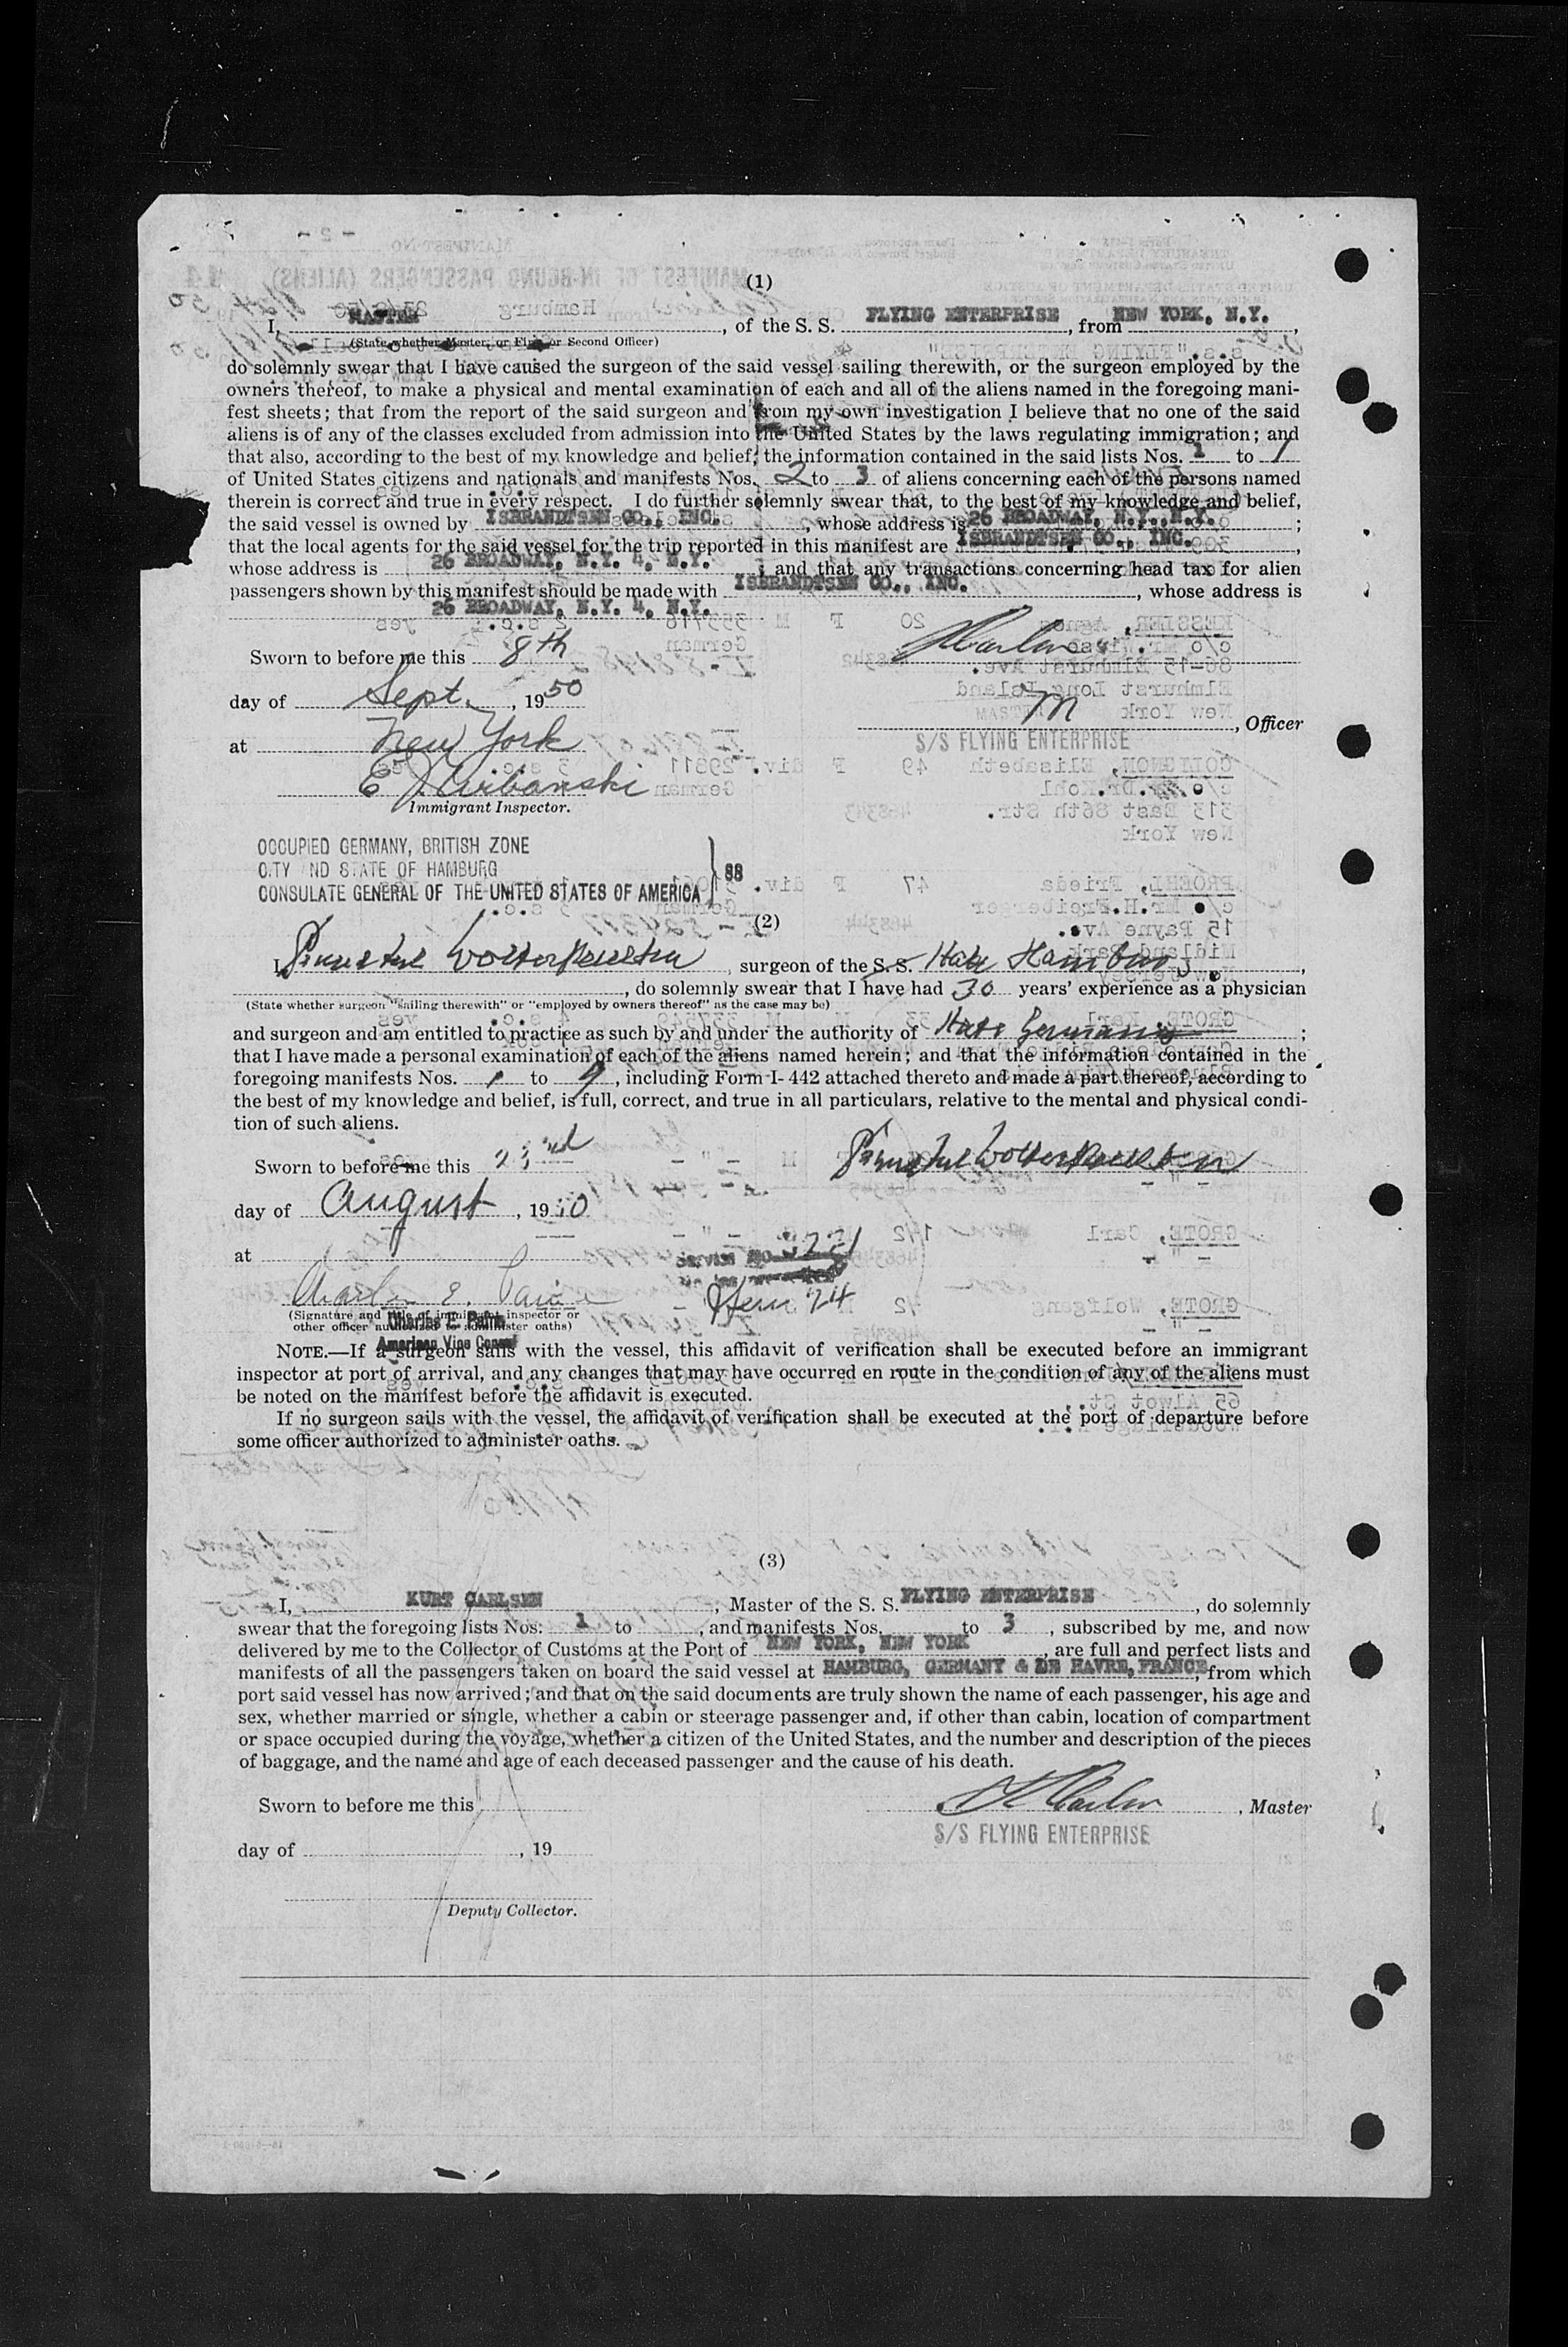 (1)
I, MASTER, of the S. S. FLYING ENTERPRISE, from NEW YORK, N.Y.,
(State whether Master, or First or Second Officer)
do solemnly swear that I have caused the surgeon of the said vessel sailing therewith, or the surgeon employed by the
owners thereof, to make a physical and mental examination of each and all of the aliens named in the foregoing mani-
fest sheets; that from the report of the said surgeon and from my own investigation I believe that no one of the said
aliens is of any of the classes excluded from admission into the United States by the laws regulating immigration; and
that also, according to the best of my knowledge and belief, the information contained in the said lists Nos. 1 to 1
of United States citizens and nationals and manifests Nos. 2 to 3 of aliens concerning each of the persons named
therein is correct and true in every respect. I do further solemnly swear that, to the best of my knowledge and belief,
the said vessel is owned by ISBRANDTSEN CO., INC., whose address is 26 BROADWAY, N.Y., N.Y.;
that the local agents for the said vessel for the trip reported in this manifest are ISBRANDTSEN CO., INC.,
whose address is 26 BROADWAY, N.Y. 4, N.Y.; and that any transactions concerning head tax for alien
passengers shown by this manifest should be made with ISBRANDTSEN CO., INC., whose address is
26 BROADWAY, N.Y. 4, N.Y.
Sworn to before me this 8th
day of Sept., 1950
M
MASTER, Officer
at New York
S/S FLYING ENTERPRISE
Immigrant Inspector.
OCCUPIED GERMANY, BRITISH ZONE
CITY AND STATE OF HAMBURG
CONSULATE GENERAL OF THE UNITED STATES OF AMERICA } SS
(2)
I, surgeon of the S. S. Hamburg,
, do solemnly swear that I have had 30 years' experience as a physician
(State whether surgeon "sailing therewith" or "employed by owners thereof" as the case may be)
and surgeon and am entitled to practice as such by and under the authority of Germany;
that I have made a personal examination of each of the aliens named herein; and that the information contained in the
foregoing manifests Nos. 1 to 9, including Form I-442 attached thereto and made a part thereof, according to
the best of my knowledge and belief, is full, correct, and true in all particulars, relative to the mental and physical condi-
tion of such aliens.
Sworn to before me this 23rd
day of August, 1950
at
Item 24
(Signature and title of immigrant inspector or
other officer authorized to administer oaths)
Charles E. Paine
American Vice Consul
NOTE.—If a surgeon sails with the vessel, this affidavit of verification shall be executed before an immigrant
inspector at port of arrival, and any changes that may have occurred en route in the condition of any of the aliens must
be noted on the manifest before the affidavit is executed.
If no surgeon sails with the vessel, the affidavit of verification shall be executed at the port of departure before
some officer authorized to administer oaths.
(3)
I, KURT CARLSEN, Master of the S. S. FLYING ENTERPRISE, do solemnly
swear that the foregoing lists Nos. 1 to , and manifests Nos. to 3, subscribed by me, and now
delivered by me to the Collector of Customs at the Port of NEW YORK, NEW YORK, are full and perfect lists and
manifests of all the passengers taken on board the said vessel at HAMBURG, GERMANY & DE HAVRE, FRANCE, from which
port said vessel has now arrived; and that on the said documents are truly shown the name of each passenger, his age and
sex, whether married or single, whether a cabin or steerage passenger and, if other than cabin, location of compartment
or space occupied during the voyage, whether a citizen of the United States, and the number and description of the pieces
of baggage, and the name and age of each deceased passenger and the cause of his death.
Sworn to before me this
K Carlsen, Master
S/S FLYING ENTERPRISE
day of , 19
Deputy Collector.